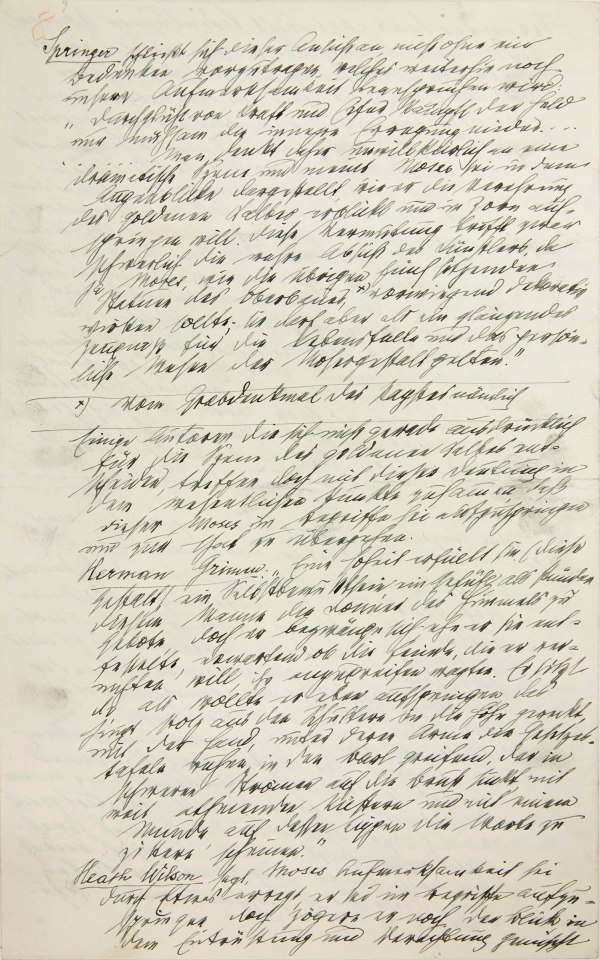 Springer schließt sich dieser Ansicht an, nicht ohne ein
Bedenken vorzutragen, welches weiterhin noch
unsere Aufmerksamkeit beanspruchen wird:
„Durchglüht von Kraft und Eifer kämpft der Held
nur mühsam die innere Erregung nieder....
Man denkt daher unwillkürlich an eine
dramatische Szene und meint, Moses sei in dem
Augenblicke dargestellt wie er die Verehrung
des goldenen Kalbes erblickt und im Zorn auf-
springen will. Diese Vermutung trifft zwar
schwerlich die wahre Absicht des Künstlers, da
ja Moses, wie die übrigen fünf sitzenden
Statuen des Oberbaues x) vorwiegend dekorativ
wirken sollte; sie darf aber als ein glänzendes
Zeugniß für die Lebensfülle und das persön-
liche Wesen der Mosesgestalt gelten."
x) vom Grabdenkmal des Papstes nämlich
Einige Autoren, die sich nicht gerade ausdrücklich
für die Szene des goldenen Kalbes ent-
scheiden, treffen doch mit dieser Deutung in
dem wesentlichen Punkte zusammen, daß
dieser Moses im Begriffe sei aufzuspringen
und zur That zu übergehen.
Herman Grimm: „Eine Hoheit erfüllt sie (diese
Gestalt) ein Selbstbewußtsein ein Gefühl als stünden
diesem Manne die Donner des Himmels zu
Gebote, doch er bezwänge sich ehe er sie ent-
fesselte, erwartend ob die Feinde, die er ver-
nichten will, ihn anzugreifen wagten. Er sitzt
da als wollte er eben aufspringen, das
Haupt stolz aus den Schultern in die Höhe gereckt,
mit der Hand, unter deren Arme die Gesetzes-
tafeln ruhen, in den Bart greifend, der in
schweren Strömen auf die Brust sinkt mit
weit athmenden Nüstern und mit einem
Munde auf dessen Lippen die Worte zu
zittern scheinen."
Heath Wilson sagt, Moses Aufmerksamkeit sei
durch etwas erregt, er sei im Begriffe aufzu-
springen doch zögere er noch. Der Blick in
dem Entrüstung und Verachtung gemischt